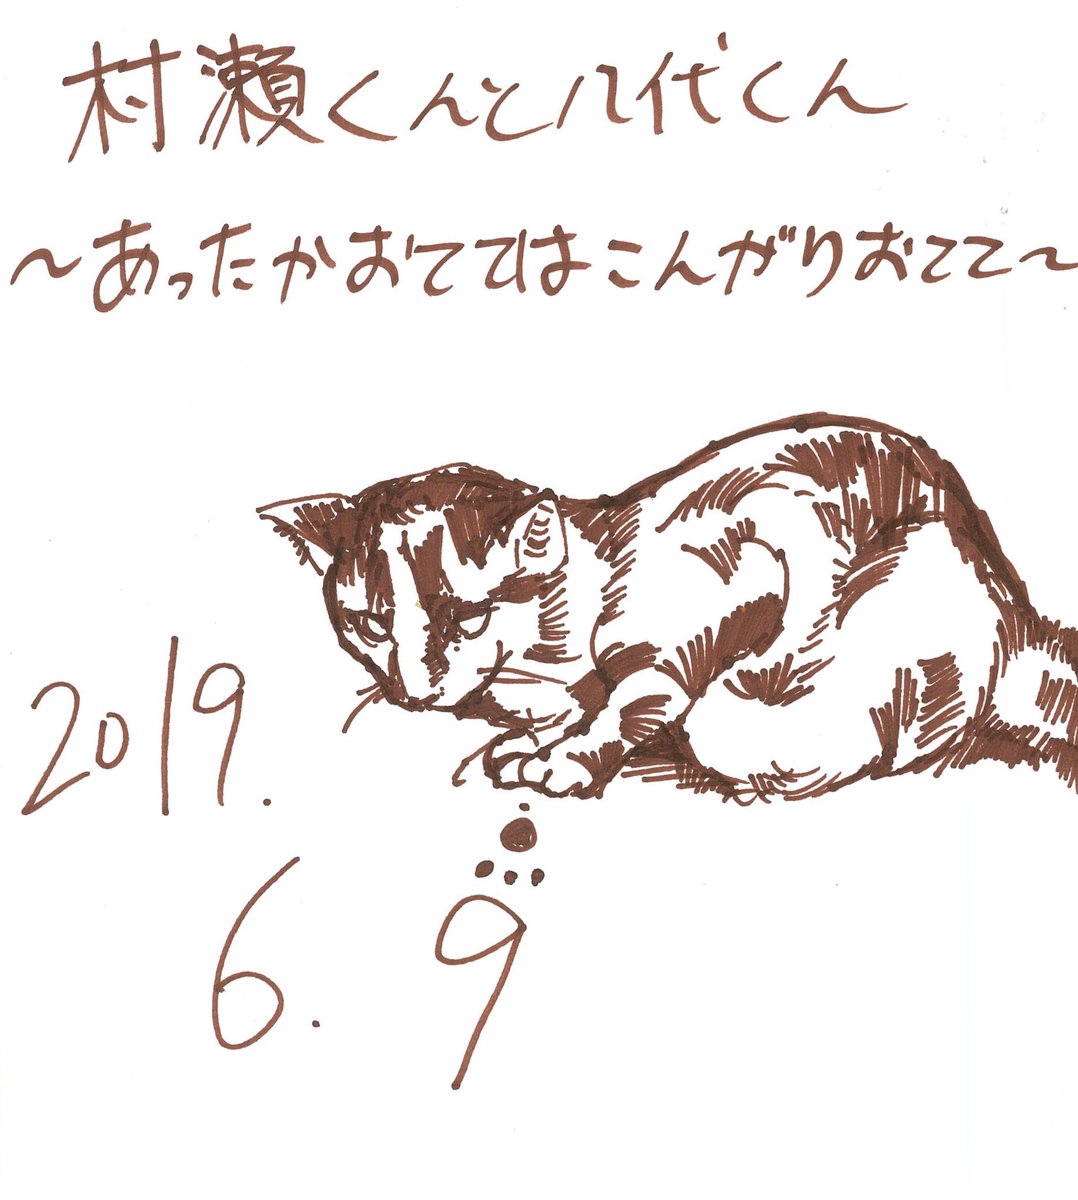 村瀬くんと八代くん
～あったかおててはこんがりおててて～
2019.
6. 9